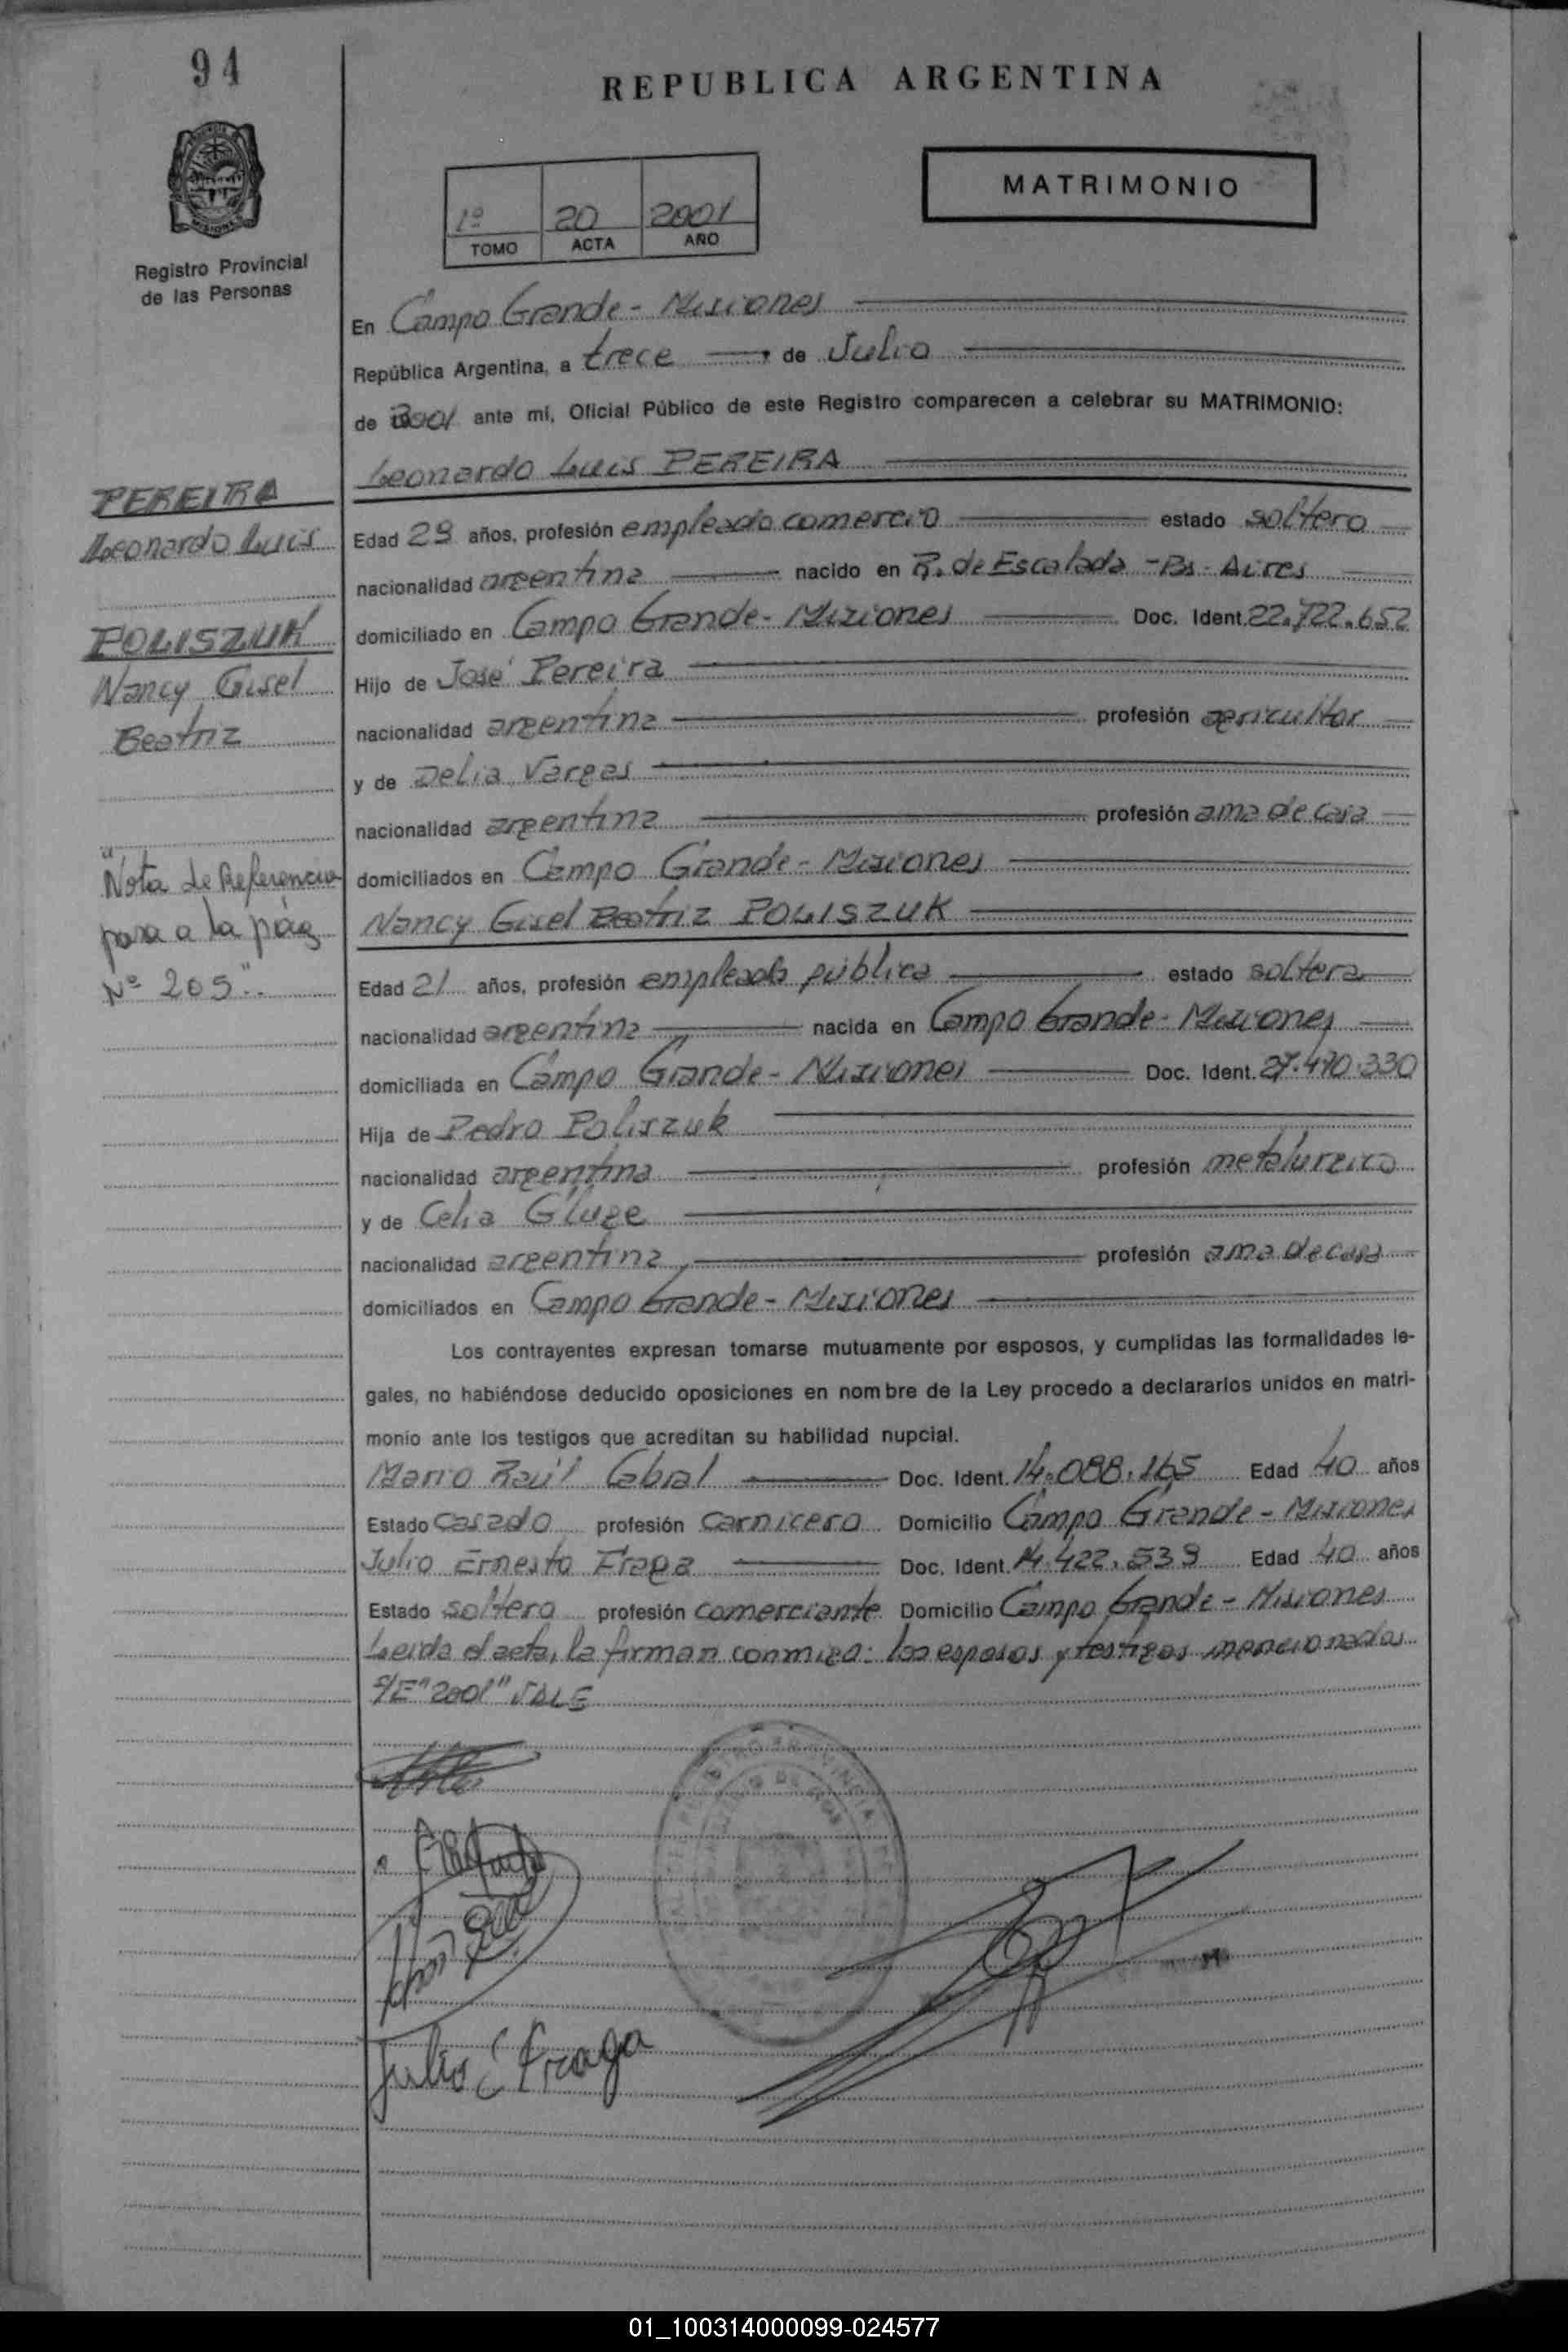 94
REPUBLICA ARGENTINA
MATRIMONIO
1º 20 2001
TOMO ACTA AÑO
Registro Provincial
de las Personas
En Campo Grande - Misiones
República Argentina, a trece de Julio
de 2001 ante mí, Oficial Público de este Registro comparecen a celebrar su MATRIMONIO:
Leonardo Luis PEREIRA
PEREIRA
Leonardo Luis
Edad 29 años, profesión empleado comercio estado soltero
nacionalidad argentina nacido en R. de Escalada - Bs. Aires
POLISZUK
Nancy Gisel
Beatriz
domiciliado en Campo Grande - Misiones Doc. Ident. 22.722.652
Hijo de José Pereira
nacionalidad argentina profesión agricultor
y de Delia Vargas
nacionalidad argentina profesión ama de casa
"Nota de Referencia
pasa a la pág
Nº 205"
domiciliados en Campo Grande - Misiones
Nancy Gisel Beatriz POLISZUK
Edad 21 años, profesión empleada pública estado soltera
nacionalidad argentina nacida en Campo Grande - Misiones
domiciliada en Campo Grande - Misiones Doc. Ident. 27.470.330
Hija de Pedro Poliszuk
nacionalidad argentina profesión metalurgico
y de Celia Gluge
nacionalidad argentina profesión ama de casa
domiciliados en Campo Grande - Misiones
Los contrayentes expresan tomarse mutuamente por esposos, y cumplidas las formalidades le-
gales, no habiéndose deducido oposiciones en nombre de la Ley procedo a declararlos unidos en matri-
monio ante los testigos que acreditan su habilidad nupcial.
Mario Raúl Cabral Doc. Ident. 14.088.165 Edad 40 años
Estado casado profesión carnicero Domicilio Campo Grande - Misiones
Julio Ernesto Fraga Doc. Ident. 14.422.539 Edad 40 años
Estado soltero profesión comerciante Domicilio Campo Grande - Misiones
Leida el acta, la firman conmigo: los esposos y testigos mencionados
S/E "2001" VALE
Julio E Fraga
01_100314000099-024577